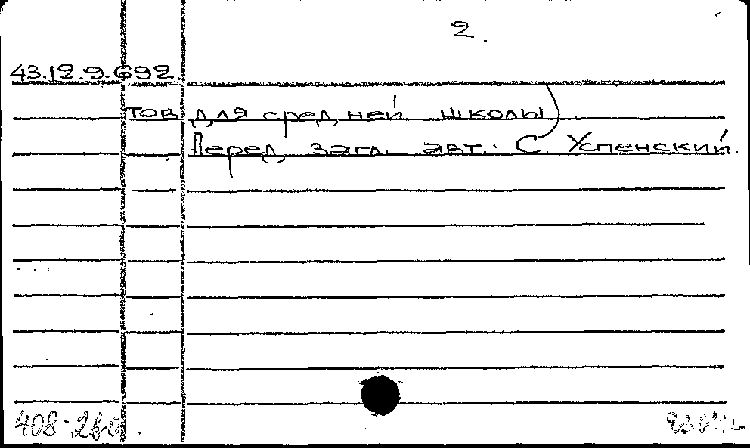 2.
43.12.9.692.
тов для средней школы)
Перед загл. авт.: С Успенский.
408